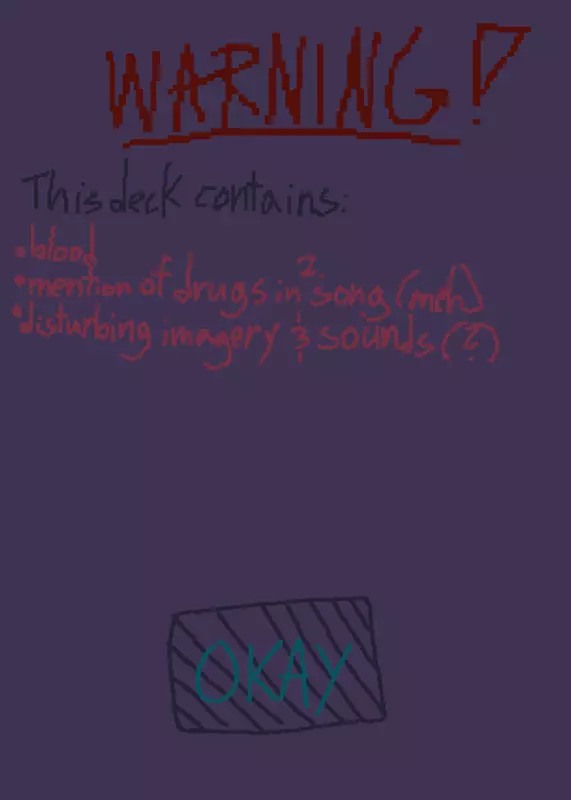 WARNING!
This deck contains:
• blood
• mention of drugs in 2. song (meh)
• disturbing imagery & sounds (?)
OKAY